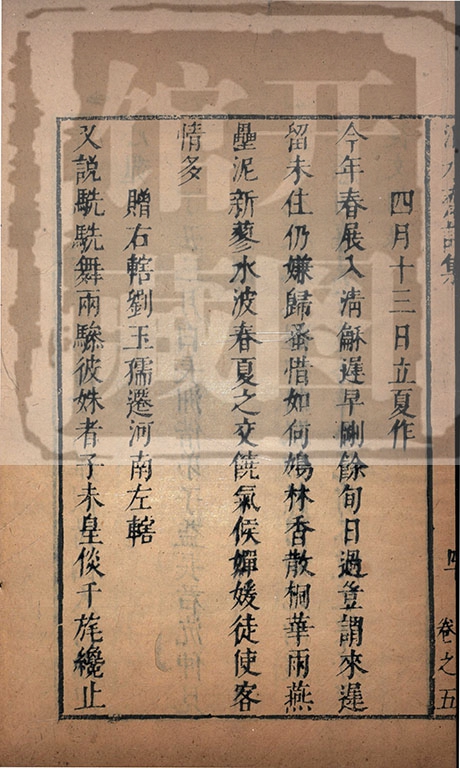 四月十三日立夏作
今年春展入淸龢遲早剛餘旬日過豈謂來遲
留未住仍嫌歸蚤惜如何鳩林香散桐華雨燕
壘泥新蓼水波春夏之交饒氣候嬋媛徒使客
情多
贈右轄劉玉孺遷河南左轄
又說駪駪舞兩驂彼姝者子未皇倓千旄纔止
卷之五